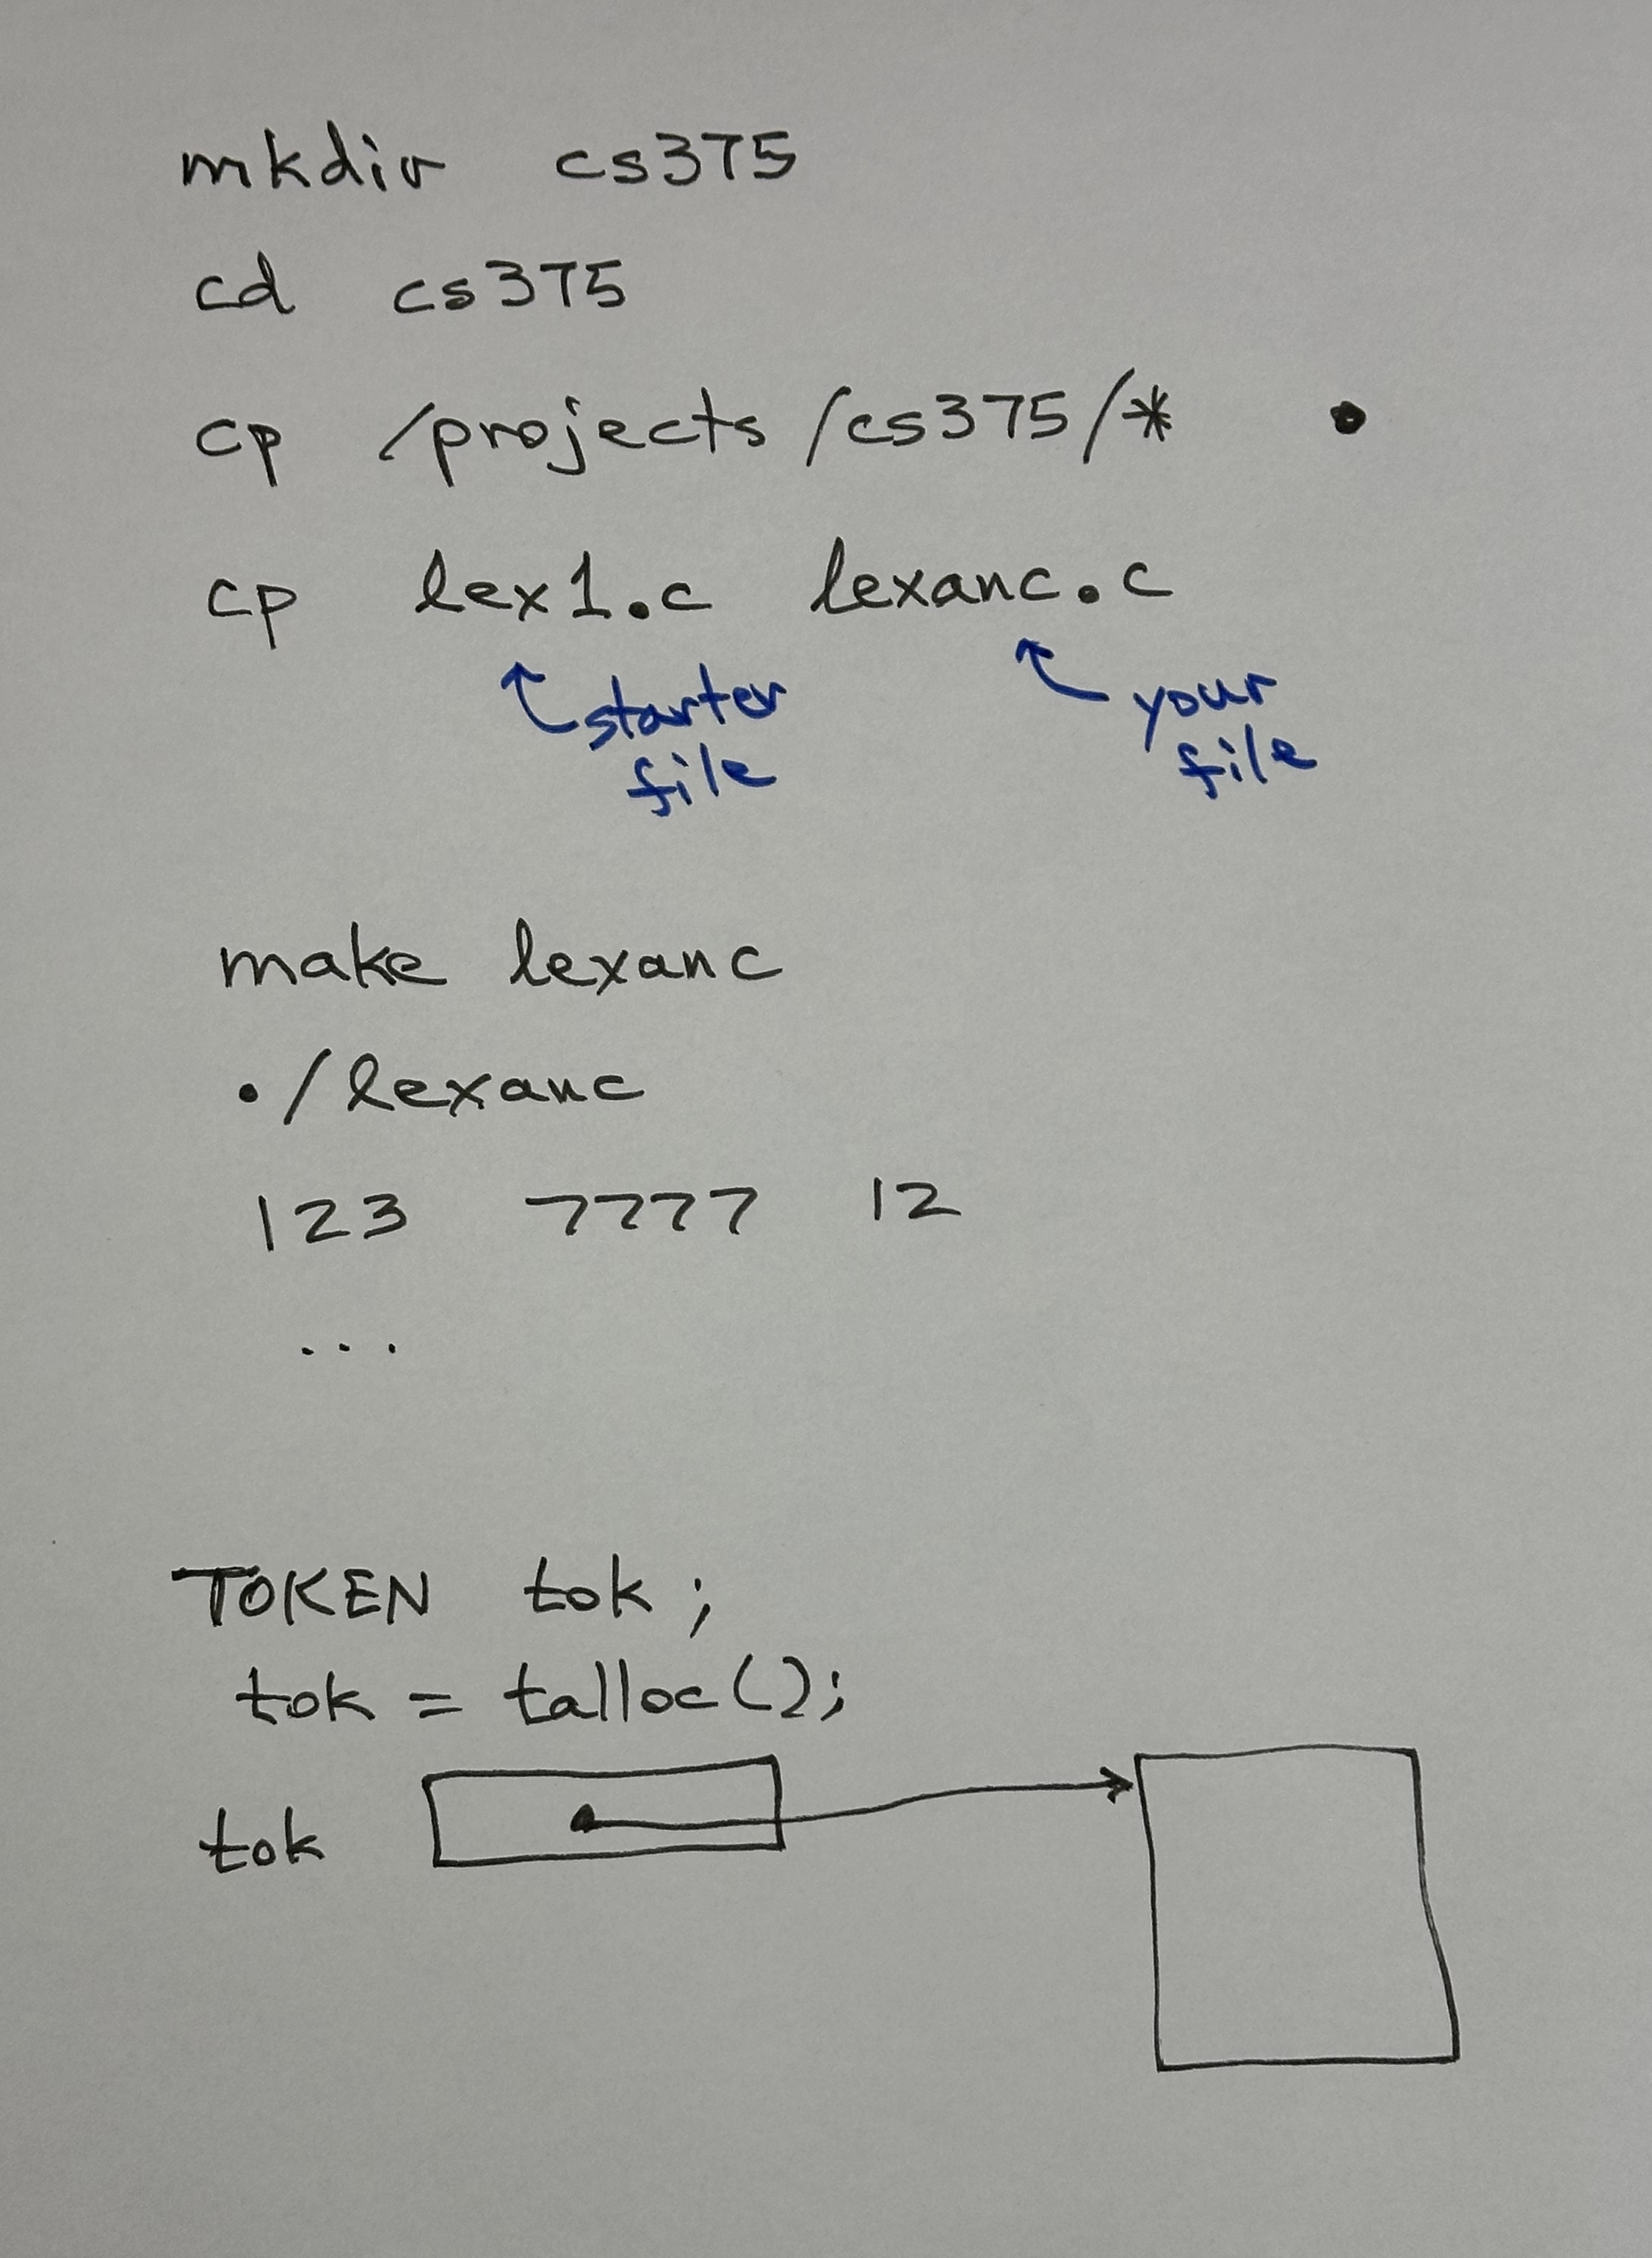 mkdir cs375
cd cs375
cp /projects/cs375/* .
cp lex1.c lexanc.c
starter
file
your
file
make lexanc
./lexanc
123 7777 12
...
TOKEN tok;
tok = talloc();
tok